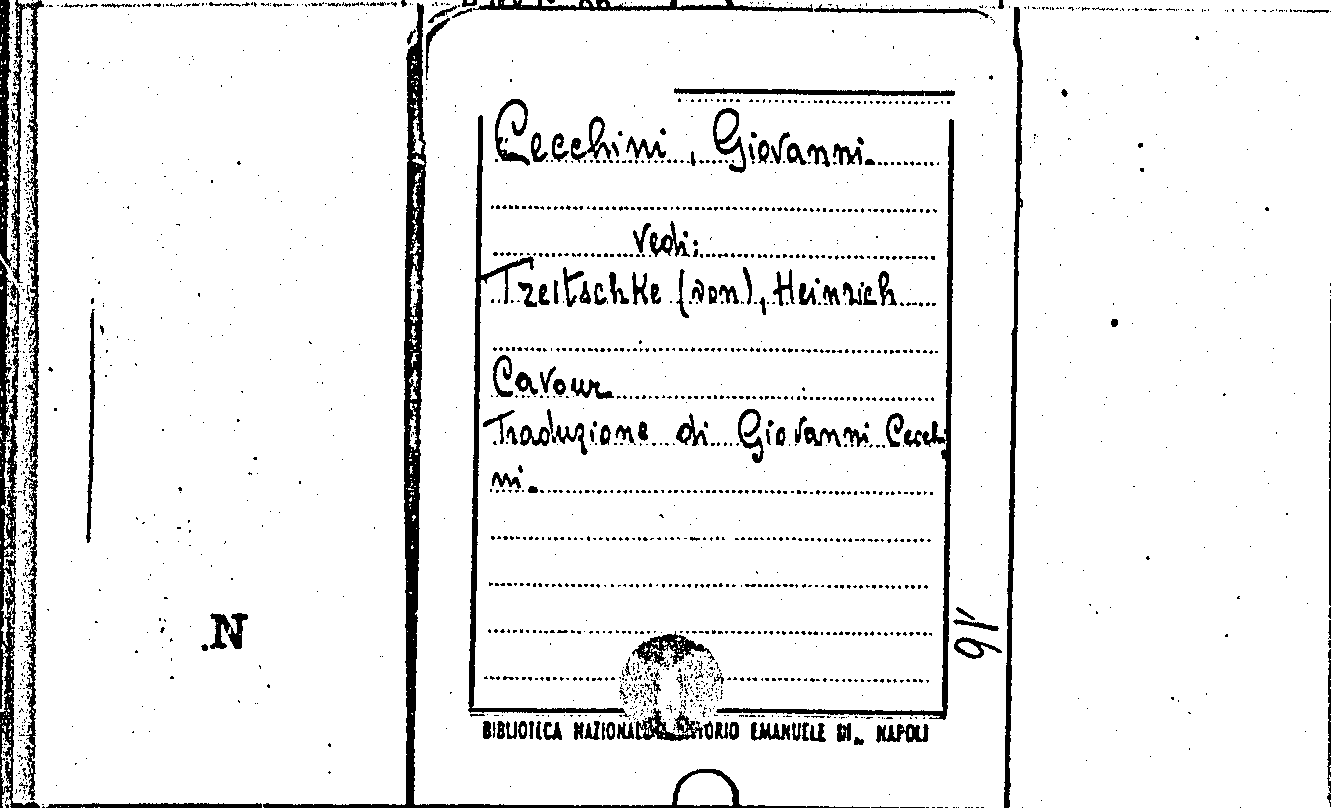 Cecchini, Giovanni.
Vedi:
Treitschke (von), Heinrich
Cavour.
Traduzione di Giovanni Cecchi
ni.
16
.N
BIBLIOTECA NAZIONALE VITTORIO EMANUELE DI NAPOLI